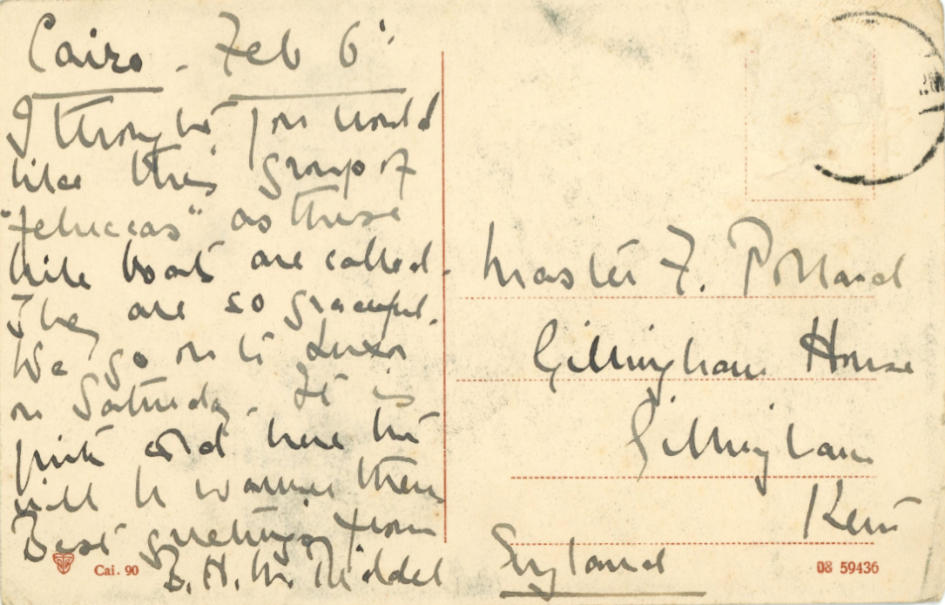 Cairo - Feb 6th
I thought you would
like this group of
"feluccas" as these
Nile boats are called.
They are so graceful.
We go on to Luxor
on Saturday. It is
quite cold here but
will be warmer there
Best greetings from
B. H. W.
Cai. 90
Master F. Pollard
Gillingham House
Gillingham
Kent
England
08 59436